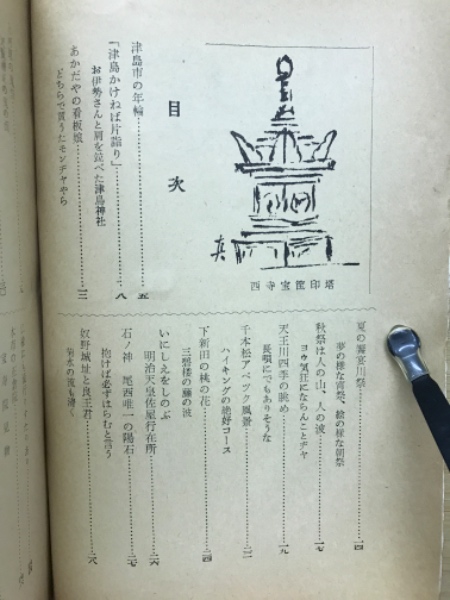 目次
津島市の年輪……五
「津島かけねば片詣り」……八
お伊勢さんと肩を並べた津島神社
あかだやの看板娘……一二
どちらで買うたモンヂヤやら
西寺宝篋印塔
夏の蜀宮川祭……一四
夢の様な宵祭、絵の様な朝祭
秋祭は人の山、人の波……一七
ヨウ気狂にならんことヂヤ
天王川四季の眺め……一九
長唄にでもありそうな
千本松アベック風景……二二
ハイキングの絶好コース
下新田の桃の花……二四
三碧楼の藤の波
いにしえをしのぶ
明治天皇佐屋行在所……二六
石ノ神 尾西唯一の陽石……二七
抱けば必ずはらむと言う
奴野城址と良王君……二八